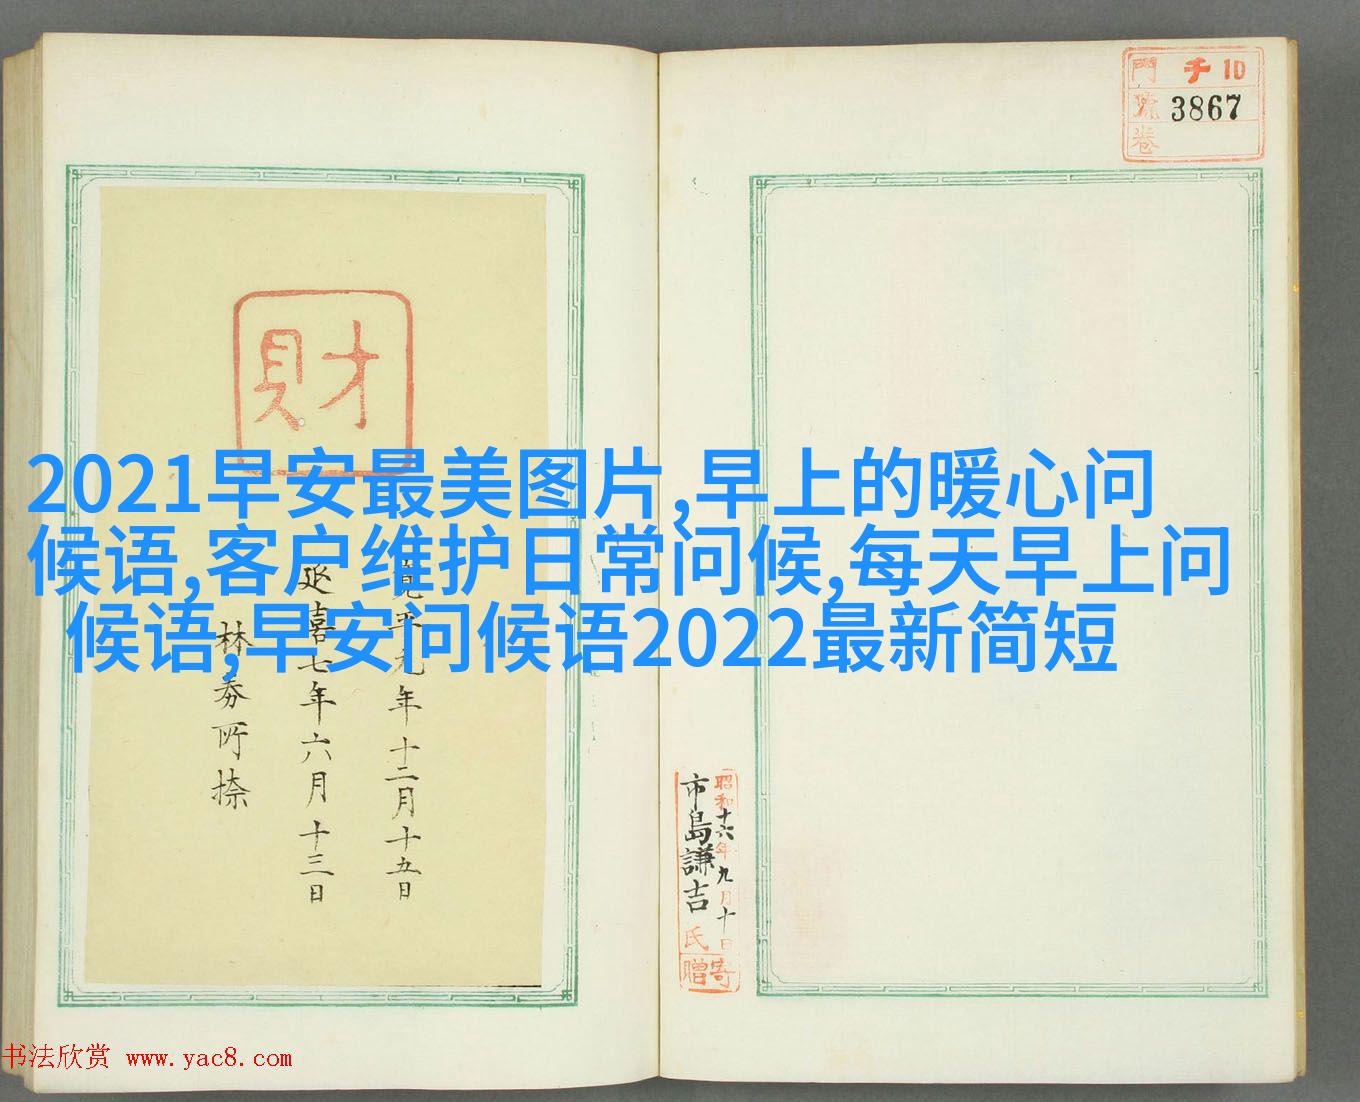 門 千 10
號 3867
卷
財
2021早安最美图片,早上的暖心问
候语,客户维护日常问候,每天早上问
候语,早安问候语2022最新简短
年十二月十五日
延喜七年六月十三日
林
所捺
昭和十六年九月十日
市島謙吉氏
寄贈
书法欣赏 www.yac8.com